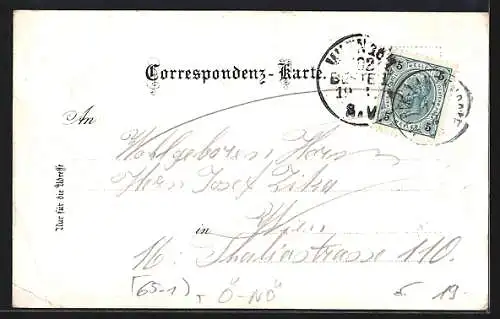 Correspondenz-Karte.
WIEN
02
BESTELLT
19
8.V
5 5
5 5
An
Wohlgeboren Herrn
Herrn Josef Zika
in Wien
16. Thaliastrasse 110.
Nur für die Adresse
(65-1) Ö-NÖ 19